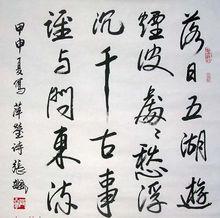 落日五湖遊
煙波處々愁浮
沉千古事
誰与問東流
甲申夏寫 薛瑩诗 張